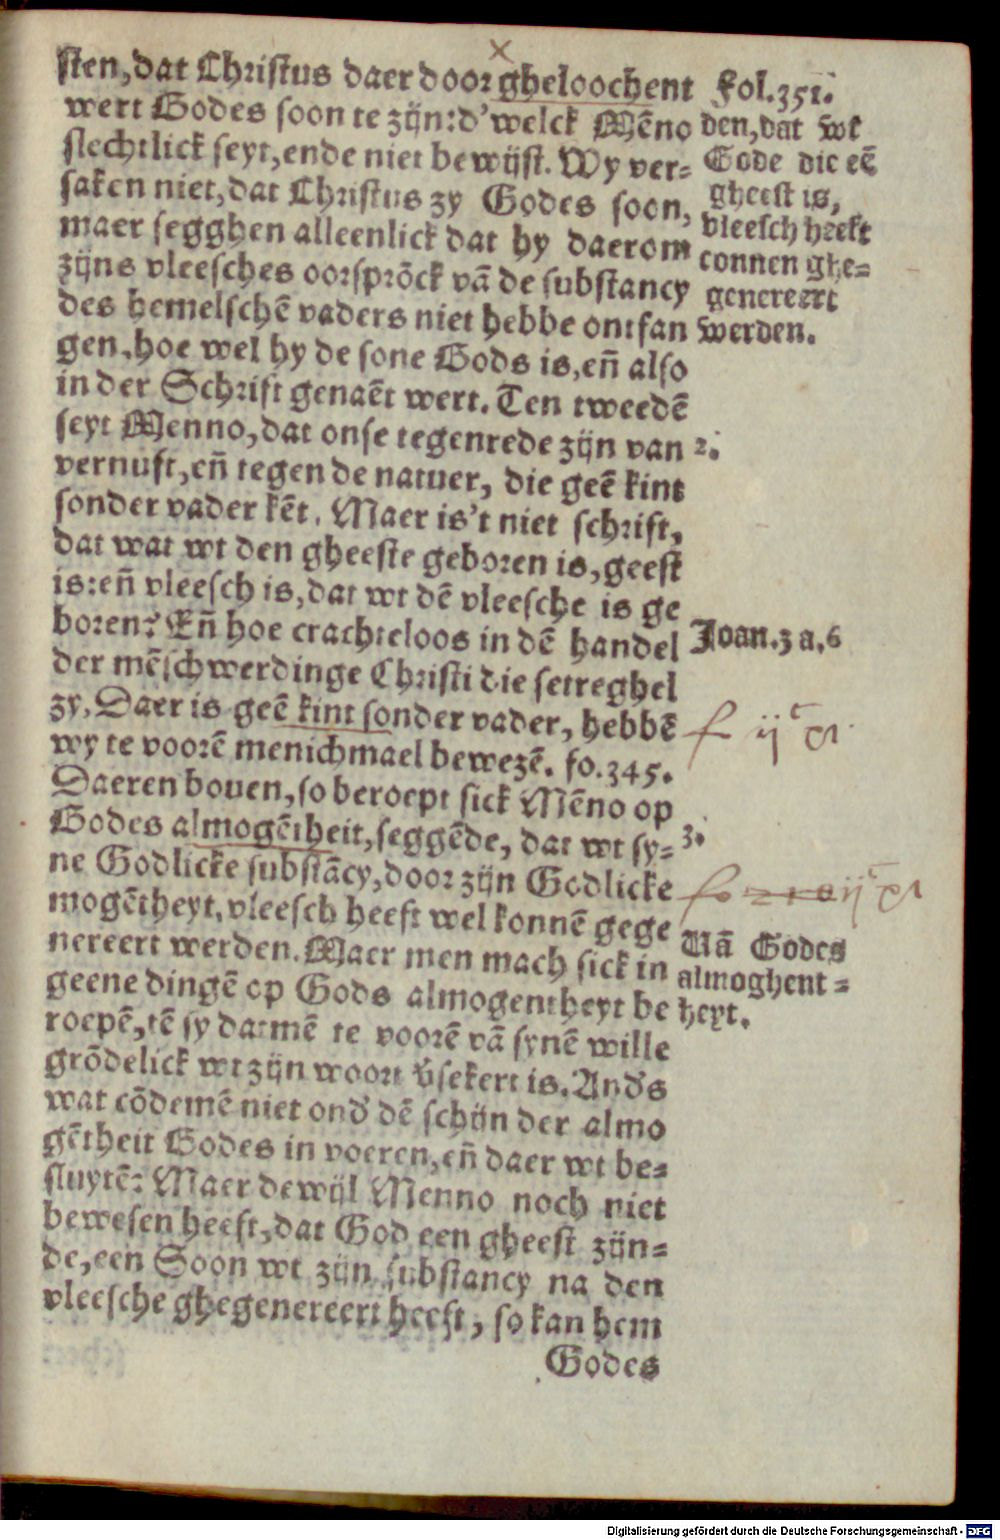 sten, dat Christus daer door gheloochent
wert Godes soon te zijn: d'welck Mēno
slechtlick seyt, ende niet bewijst. Wy ver-
saken niet, dat Christus zy Godes soon,
maer segghen alleenlick dat hy daerom
zijns vleesches oorsprōck vā de substancy
des hemelschē vaders niet hebbe ontfan
gen, hoe wel hy de sone Gods is, eñ also
in der Schrift genaēt wert. Ten tweedē
seyt Menno, dat onse tegenrede zijn van
vernuft, eñ tegen de natuer, die geē kint
sonder vader kēt. Maer is't niet schrift,
dat wat wt den gheeste geboren is, geest
is: eñ vleesch is, dat wt dē vleesche is ge
boren? Eñ hoe crachteloos in dē handel
der mēschwerdinge Christi die setreghel
zy, Daer is geē kint sonder vader, hebbē
wy te voorē menichmael bewezē. fo. 345.
Daeren boven, so beroept sick Mēno op
Godes almogētheit, seggēde, dat wt sy-
ne Godlicke substācy, door zijn Godlicke
mogētheyt, vleesch heeft wel konnē gege
nereert werden. Maer men mach sick in
geene dingē op Gods almogentheyt be
roepē, tē sy datmē te voorē vā synē wille
grōdelick wt zijn woort v̄sekert is. And's
wat cōdemē niet ond' dē schijn der almo
gētheit Godes in voeren, eñ daer wt be-
sluytē? Maer dewijl Menno noch niet
bewesen heeft, dat God een gheest zijn-
de, een Soon wt zijn substancy na den
vleesche ghegenereert heeft, so kan hem
Godes
Fol. 351.
den, dat wt
Gode die eē
gheest is,
vleesch heeft
connen ghe-
genereert
werden.
2.
Joan. 3 a. 6
3.
Uā Godes
almoghent-
heyt.
Digitalisierung gefördert durch die Deutsche Forschungsgemeinschaft - DFG